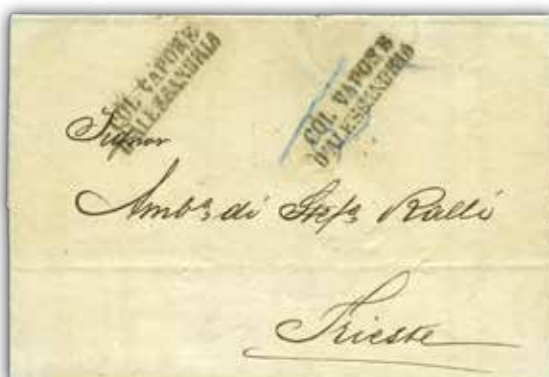 COL VAPORE
D'ALESSANDRIA
COL VAPORE
D'ALESSANDRIA
Signor
Ambº di Stefº Ralli
Trieste